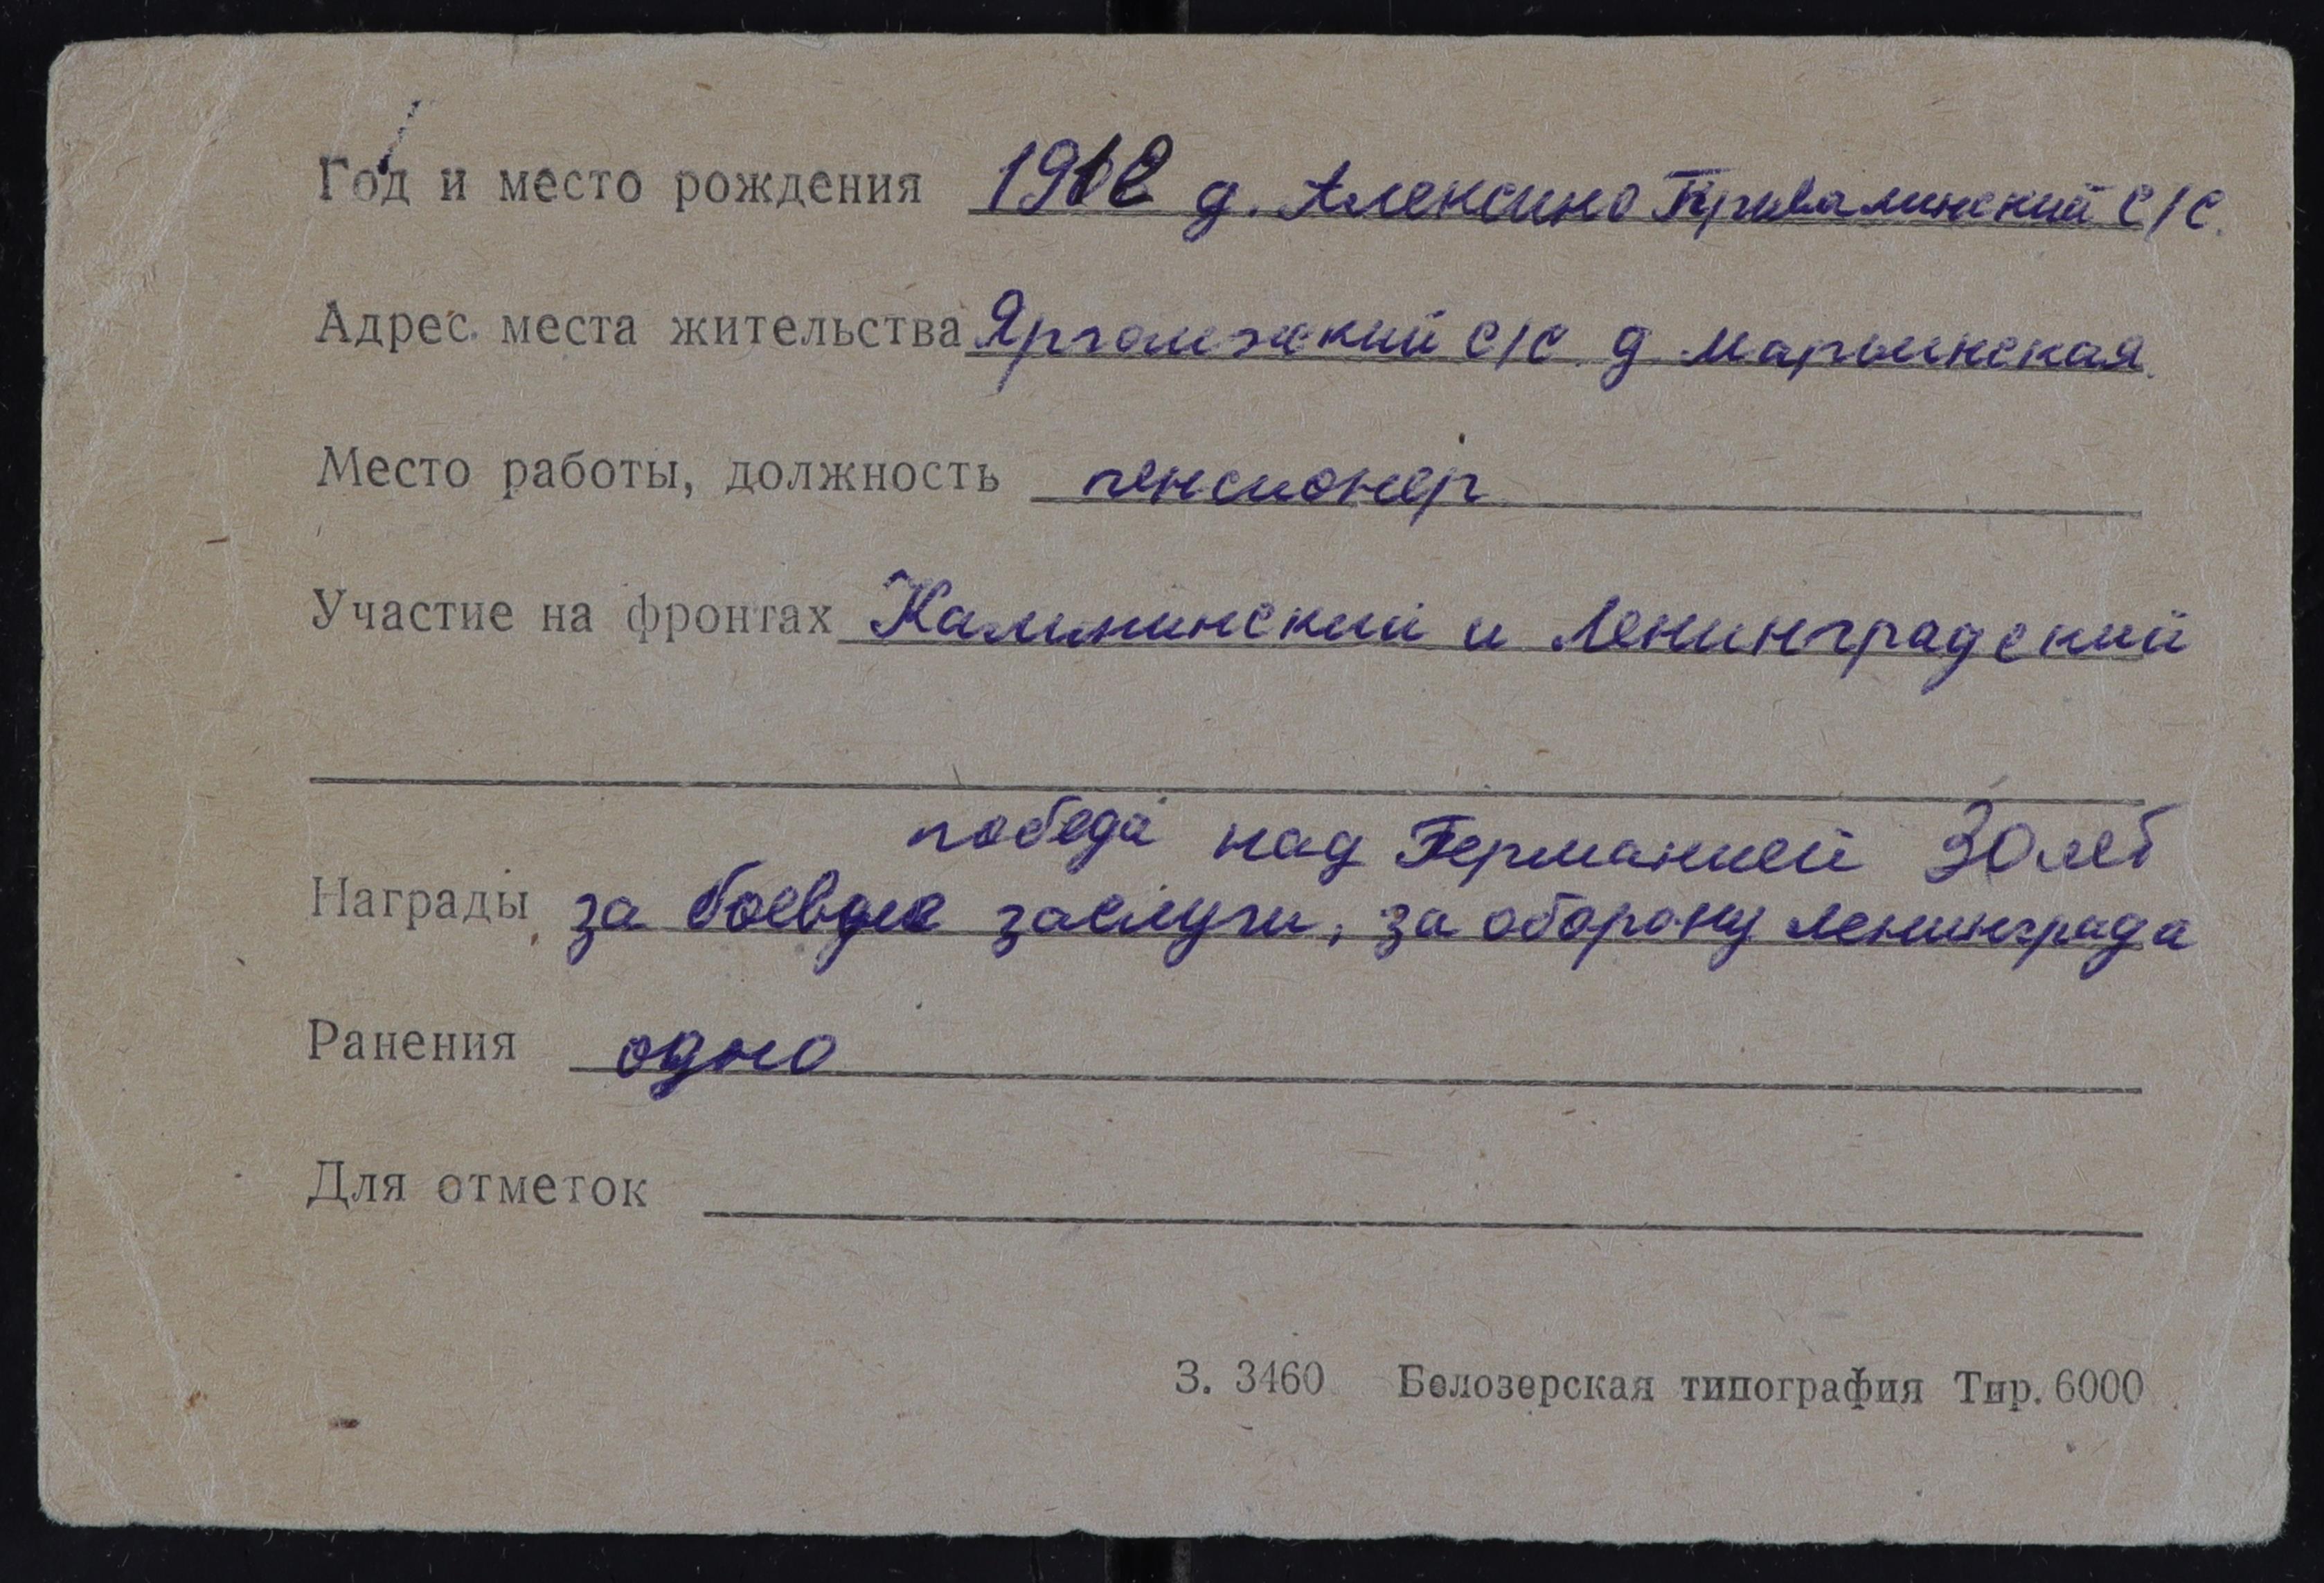 Год и место рождения 1912 д. Алексино с/с.
Адрес места жительства Яргомжский с/с. д. Марьинская.
Место работы, должность пенсионер
Участие на фронтах Калининский и Ленинградский
победа над Германией 30 лет
Награды за боевые заслуги, за оборону Ленинграда
Ранения одно
Для отметок
З. 3460 Белозерская типография Тир. 6000